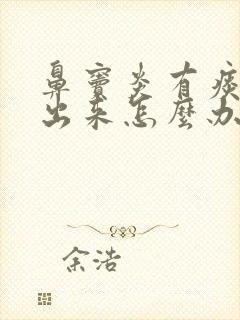 鼻窦炎有痰
出来怎麽办
余浩